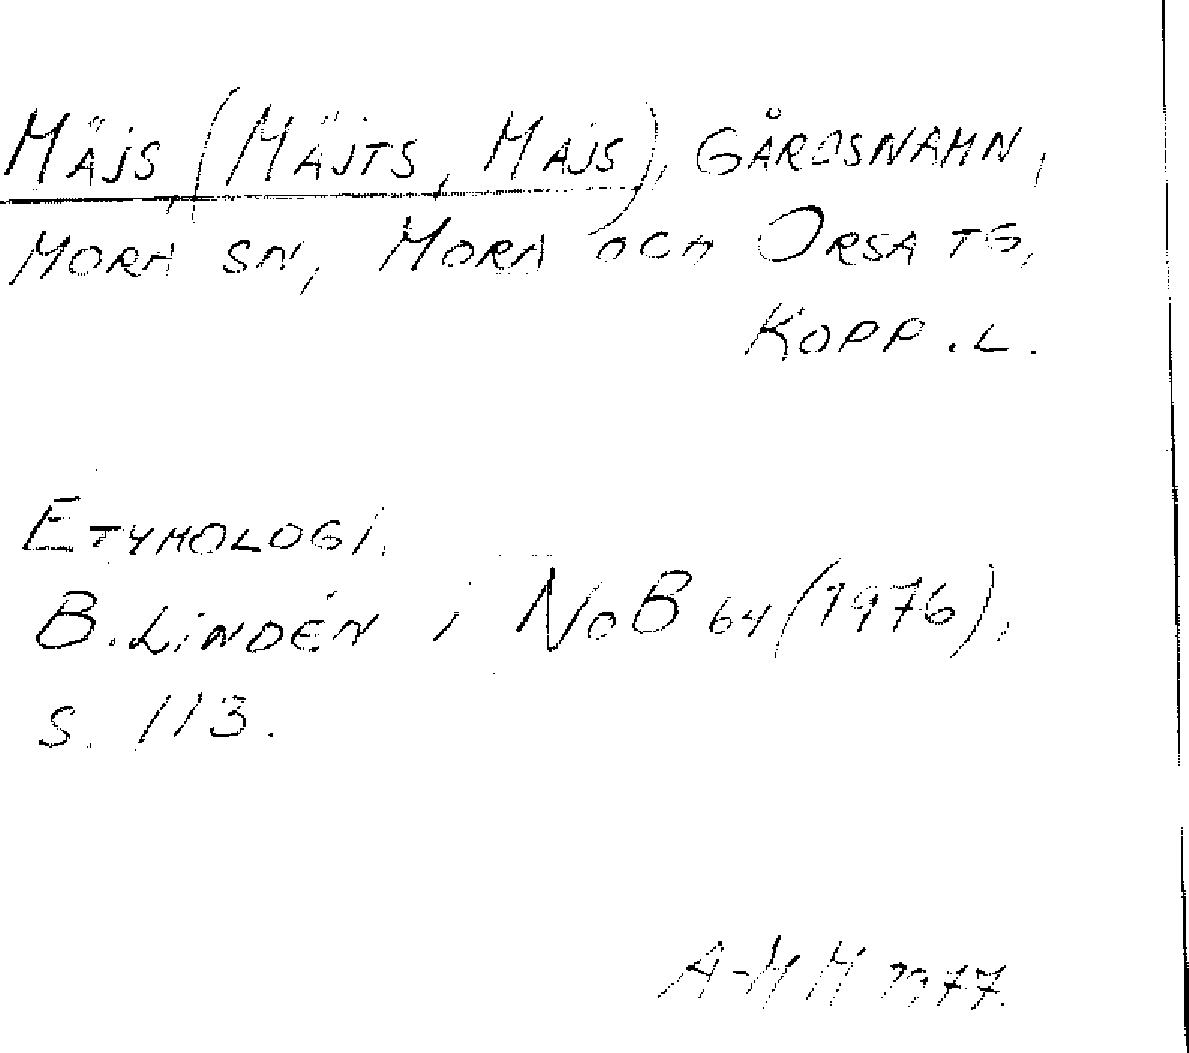 Mäjs (Mäjts, Majs), gårdsnamn,
Mora sn, Mora och Orsa tg,
Kopp.l.
Etymologi.
B. Lindén i NoB 64 (1976),
s. 113.
A-MH 1977.